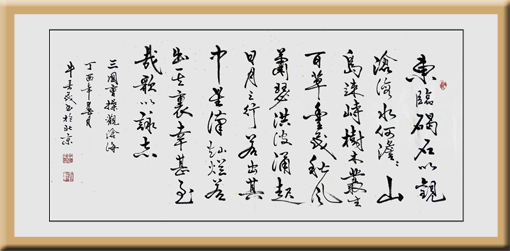 東臨碣石以觀
滄海水何澹々山
島竦峙樹木叢生
百草豐茂秋風
蕭瑟洪波涌起
日月之行若出其
中星漢燦爛若
出其裏幸甚至
哉歌以詠志
三國曹操觀滄海
丁酉年月
牛於北京